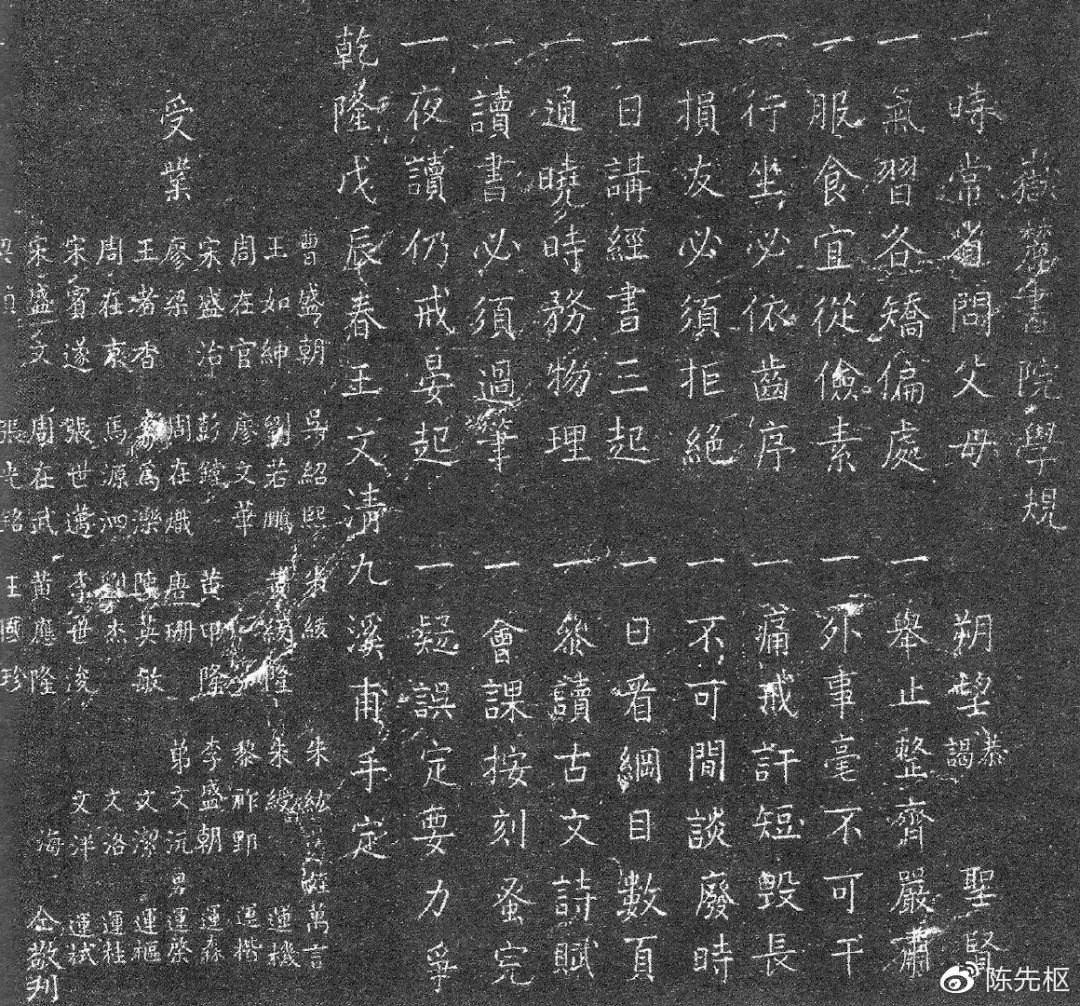 嶽麓書院學規
一時常省問父母 一朔望恭謁聖賢
一氣習各矯偏處 一舉止整齊嚴肅
一服食宜從儉素 一外事毫不可干
一行坐必依齒序 一痛戒訐短毀長
一損友必須拒絕 一不可閒談廢時
一日講經書三起 一日看綱目數頁
一通曉時務物理 一參讀古文詩賦
一讀書必須過筆 一會課按刻蚤完
一夜讀仍戒晏起 一疑誤定要力爭
乾隆戊辰春王文清九溪甫手定
受業
曹盛朝 吳紹熙 朱 朱紘 姪萬言
王如紳 劉若鵬 黃隆 朱綬 運機
周在官 廖文華 黎祚郢 運楷
宋盛治 彭鏜 黃甲隆 李盛朝 運森
廖梁 周在熾 唐珊 弟文沅 男運
王者香 萬濼 陳英敏 文潔 運樞
周在衷 馬源泗 劉杰 文洛 運桂
宋賓遂 張世邁 李世浚 文洋 運栻
宋盛文 周在武 黃應隆 海 仝敬刊
張光銘 王國珍
陈先枢